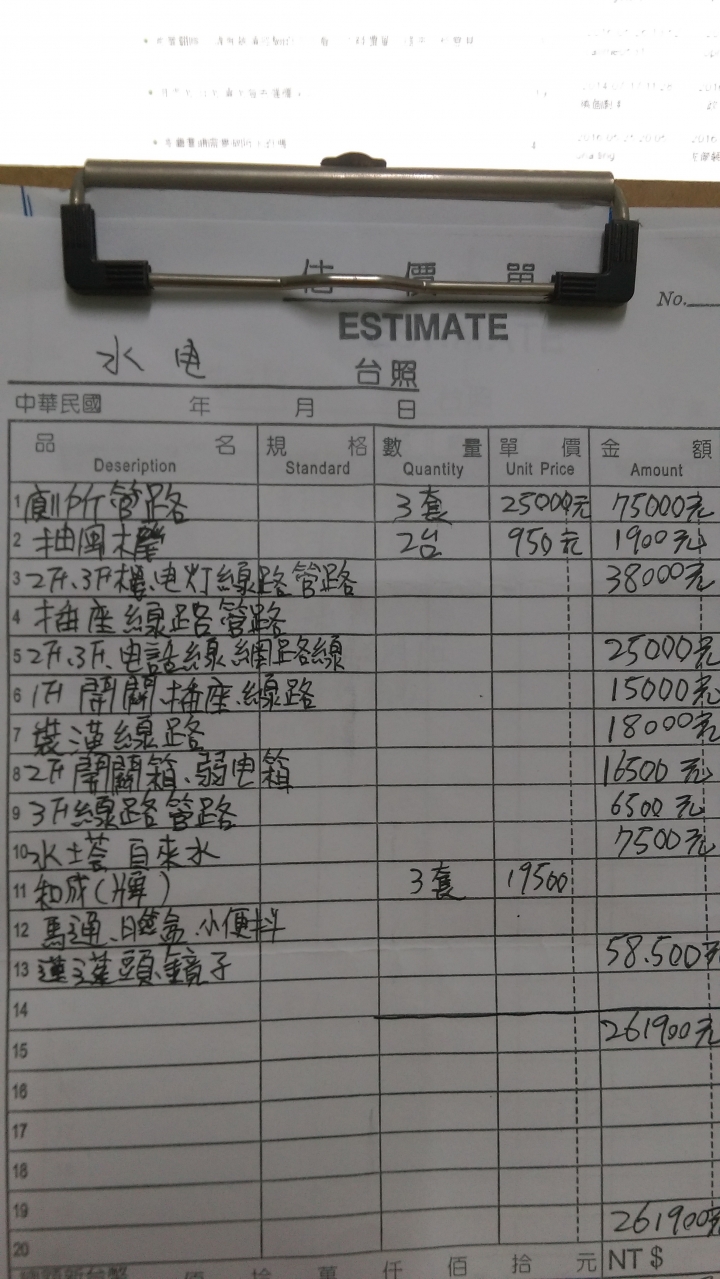 估價單
No.
ESTIMATE
水电 台照
中華民國 年 月 日
品名 規格 數量 單價 金額
Deseription Standard Quantity Unit Price Amount
1 廁所管路 3套 25000元 75000元
2 抽風 2台 950元 1900元
3 2F.3F 电灯線路管路 38000元
4 插座線路管路
5 2F.3F.电話線.網路線 25000元
6 1F 開關.插座.線路 15000元
7 裝潢線路 18000元
8 2F開關箱、弱电箱 16500元
9 3F線路管路 6500元
10 水塔 自來水 7500元
11 和成(牌) 3套 19500
12 馬通、臉盆.小便斗
13 蓮蓬頭.鏡子 58.500元
14
15 261900元
16
17
18
19 261900元
20
萬 仟 佰 拾 元 NT $